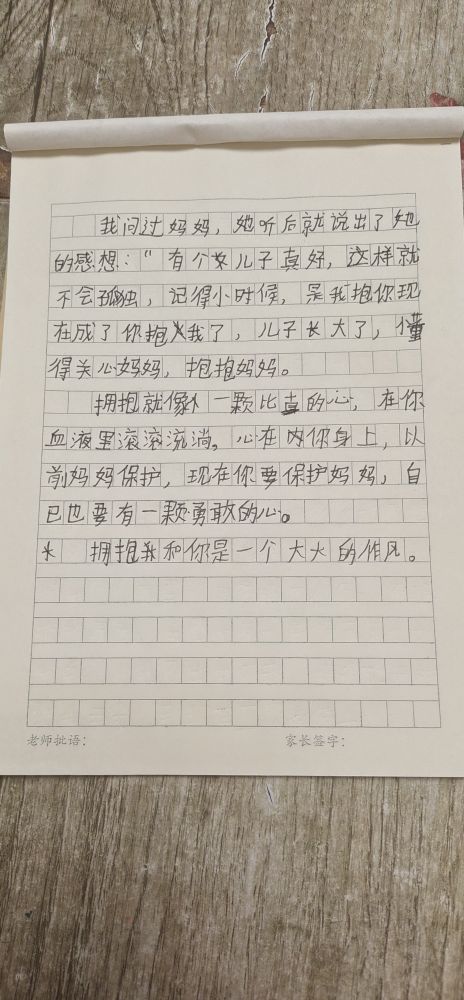 我问过妈妈，她听后就说出了她
的感想："有个儿子真好，这样就
不会孤独，记得小时候，是我抱你现
在成了你抱我了，儿子长大了，懂
得关心妈妈，抱抱妈妈。
拥抱就像一颗比真的心，在你
血液里滚滚流淌。心在你身上，以
前妈妈保护，现在你要保护妈妈，自
已也要有一颗勇敢的心。
拥抱我和你是一个大火的作风。
老师批语： 家长签字：